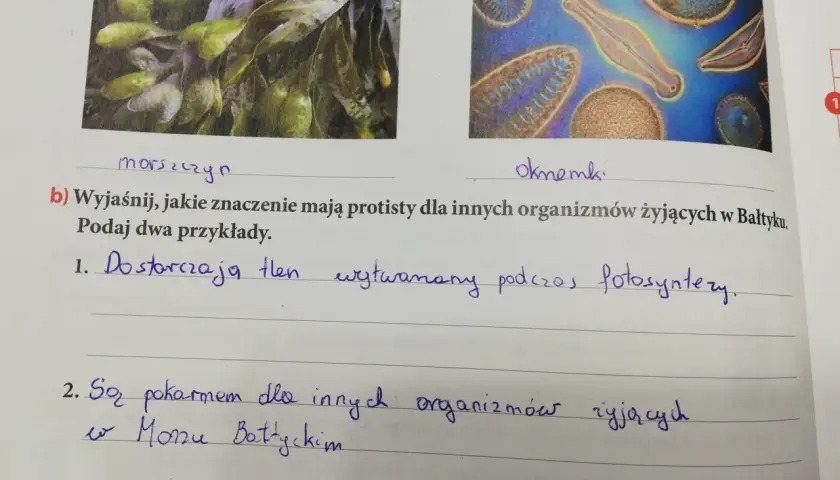 morszczyn
okrzemki
b) Wyjaśnij, jakie znaczenie mają protisty dla innych organizmów żyjących w Bałtyku.
Podaj dwa przykłady.
1. Dostarczają tlen wytwarzany podczas fotosyntezy.
2. Są pokarmem dla innych organizmów żyjących
w Morzu Bałtyckim
1